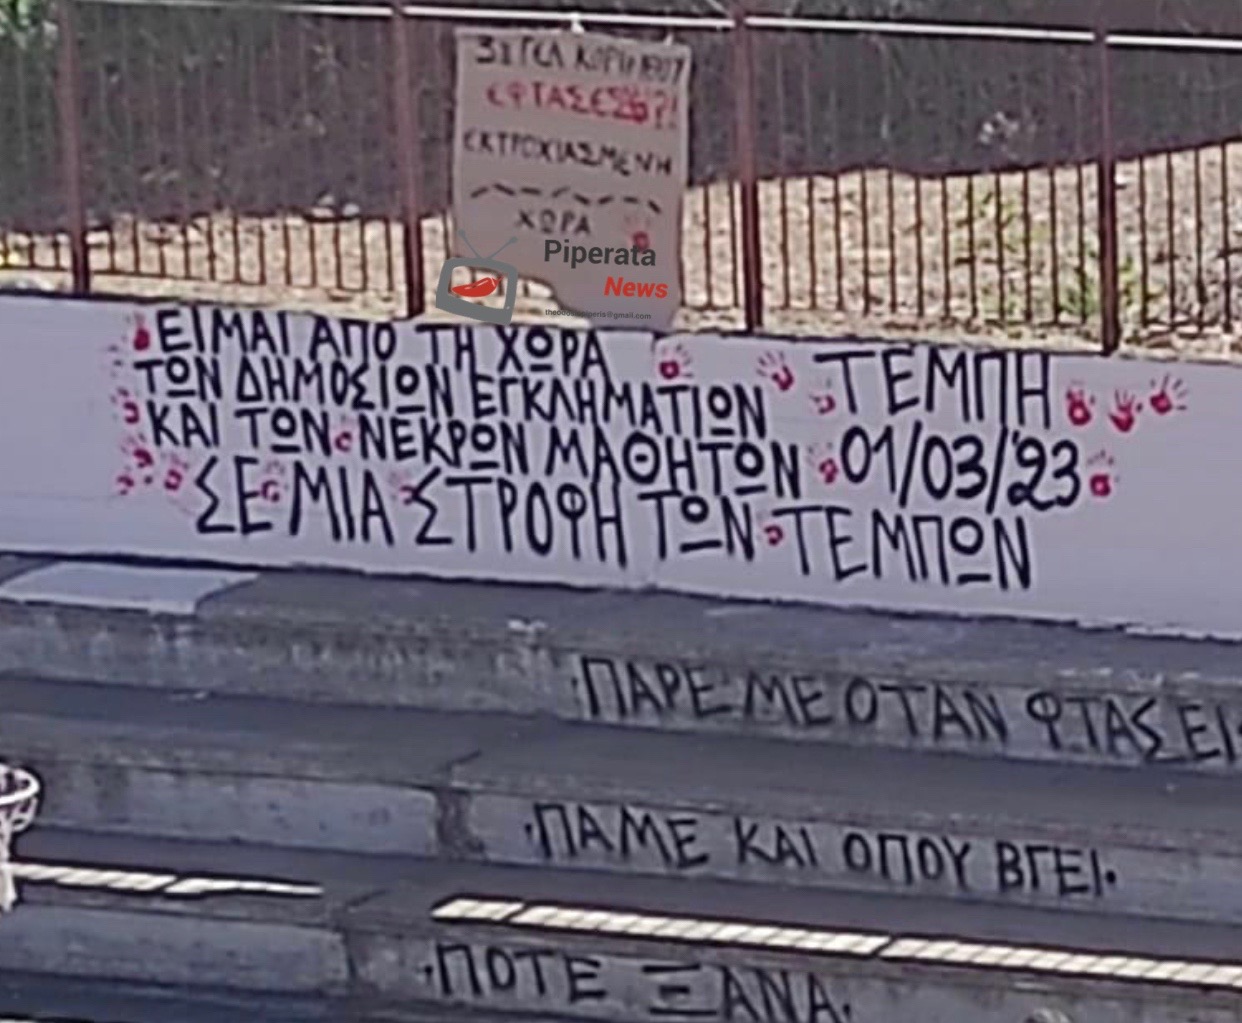 ΕΦΤΑΣΕΣ;?!
ΕΚΤΡΟΧΙΑΣΜΕΝΗ
ΧΩΡΑ
Piperata
News
ΕΙΜΑΙ ΑΠΟ ΤΗ ΧΩΡΑ
ΤΩΝ ΔΗΜΟΣΙΩΝ ΕΓΚΛΗΜΑΤΙΩΝ
ΚΑΙ ΤΩΝ ΝΕΚΡΩΝ ΜΑΘΗΤΩΝ
ΣΕ ΜΙΑ ΣΤΡΟΦΗ ΤΩΝ ΤΕΜΠΩΝ
ΤΕΜΠΗ
01/03/'23
·ΠΑΡΕ ΜΕ ΟΤΑΝ ΦΤΑΣΕΙ·
·ΠΑΜΕ ΚΑΙ ΟΠΟΥ ΒΓΕΙ·
·ΠΟΤΕ ΞΑΝΑ·